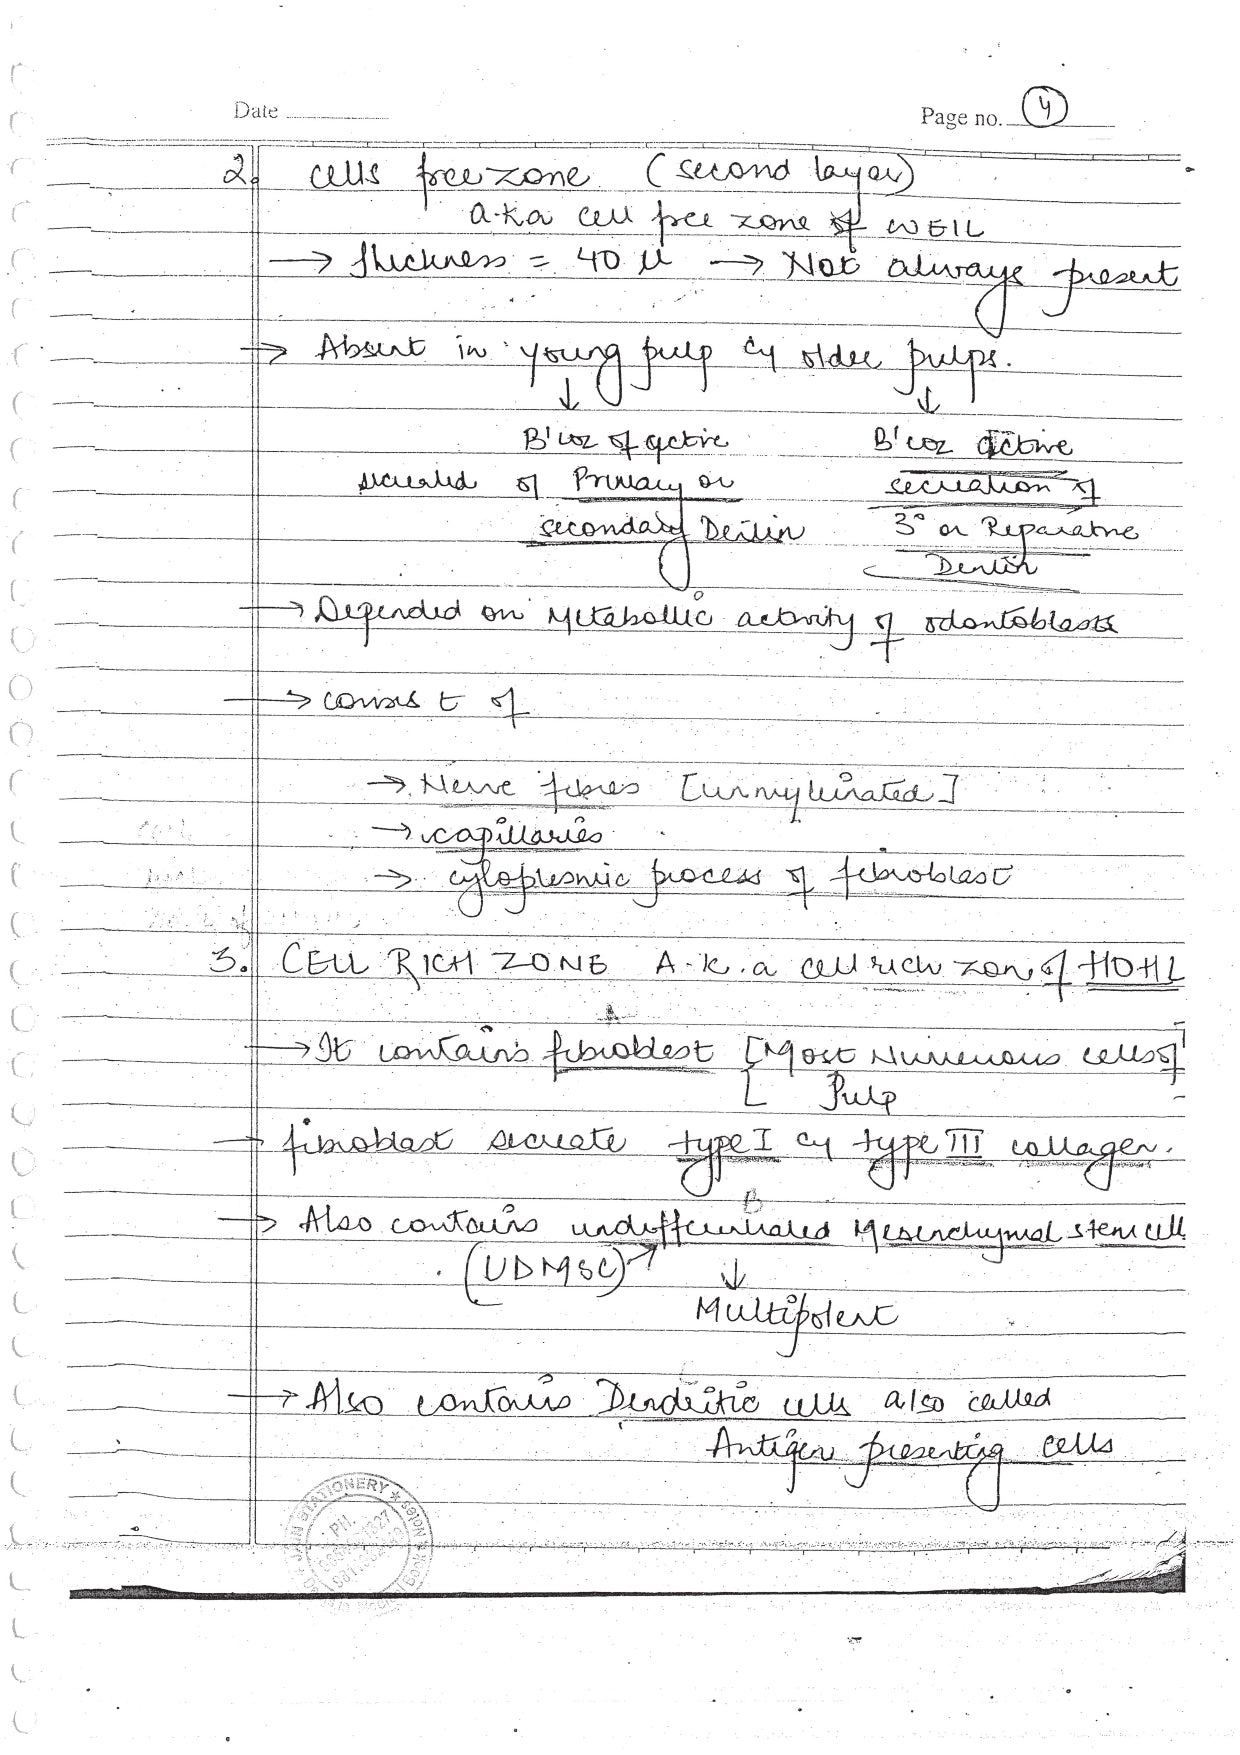 Date
Page no. 4
2. cells free zone (second layer)
a.k.a cell free zone of WEIL
→ thickness = 40 µ → Not always present
→ Absent in young pulp & older pulps.
↓ ↓
B'coz of active B'coz active
secreated of Primary or secreation of
secondary Dentin 3° or Reparative
Dentin
→ Depended on Metabollic activity of odontoblasts
→ consist of
→ Nerve fibres [unmyleinated]
→ capillaries
→ cytoplasmic process of fibroblast
3. CELL RICH ZONE A.K.a cell rich zone of HOHL
A
→ It contains fibroblast [Most Numerous cells of
Pulp
→ fibroblast secreate type I & type III collagen.
B
→ Also contains undifferentiated Mesenchymal stem cell
(UDMSC) ↓
Multipotent
→ Also contains Dendritic cells also called
Antigen presenting cells
STATIONERY
PH.